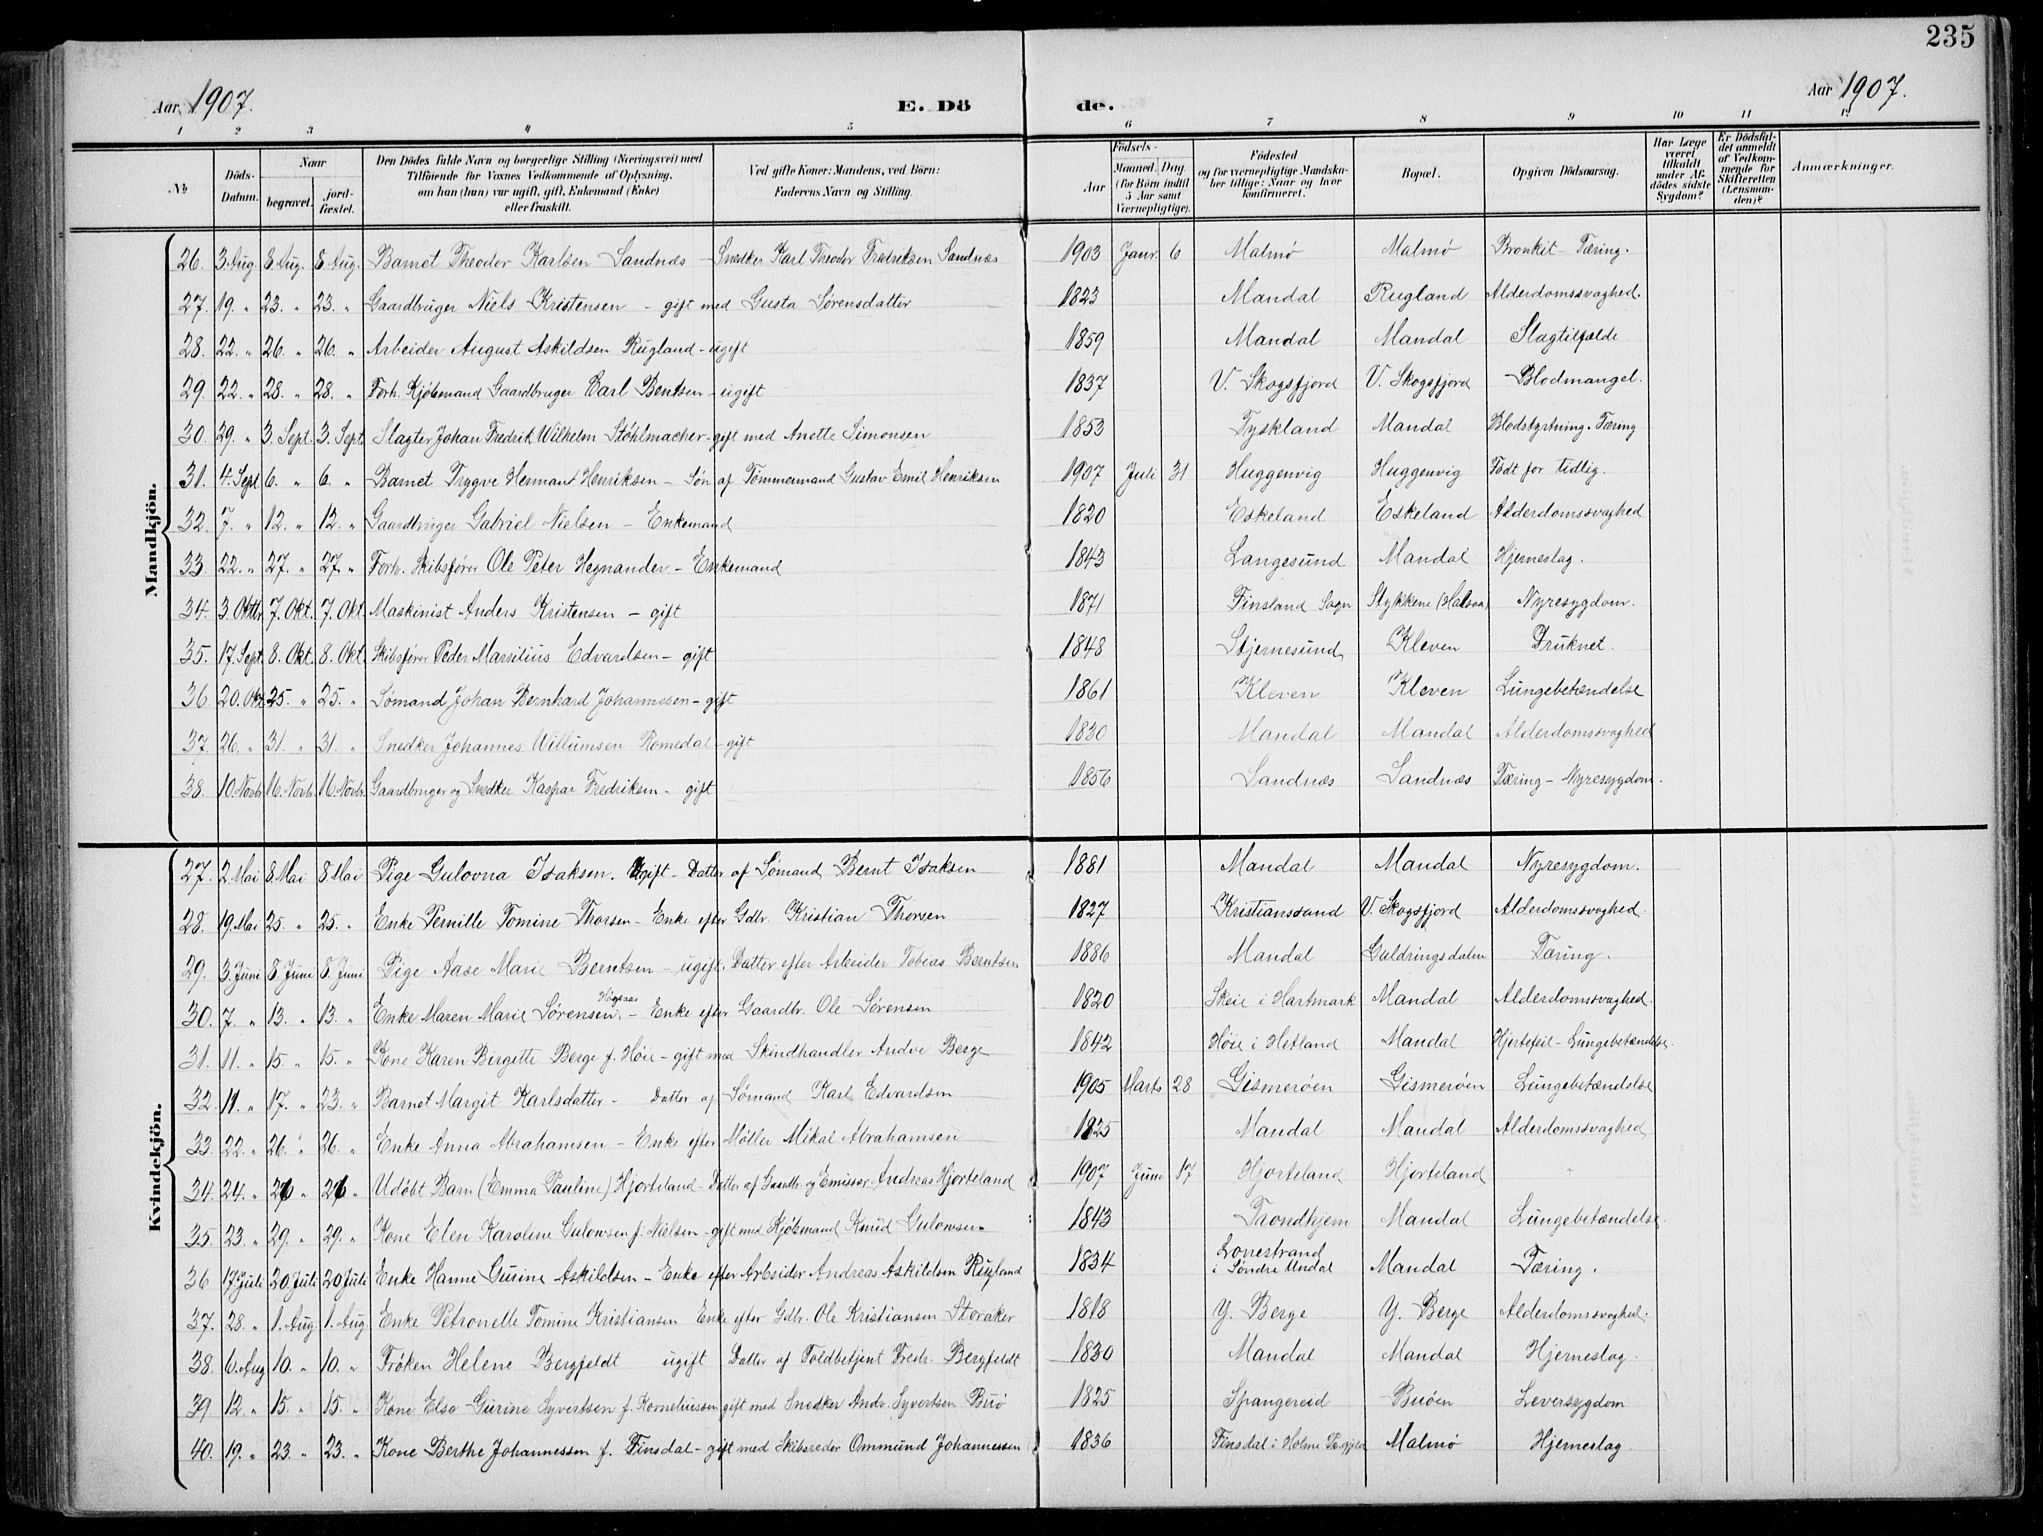 235
Aar 1907. E. Dö de. Aar 1907.
1 2 3 4 5 6 7 8 9 10 11 12
№ Döds-Datum. Naar begravet. jord-fæstet. Den Dödes fulde Navn og borgerlige Stilling (Næringsvei) med Tilföiende for Voxnes Vedkommende af Oplysning, om han (hun) var ugift, gift, Enkemand (Enke) eller fraskilt. Ved gifte Koner: Mandens, ved Börn: Faderens Navn og Stilling. Födsels- Aar Maaned. Dag. (for Börn indtil 5 Aar samt Værnepligtige). Födested og for værnepligtige Mandskaber tillige: Naar og hvor konfirmeret. Bopæl. Opgiven Dödsaarsag. Har Læge været tilkaldt under Afdödes sidste Sygdom? Er Dödsfaldet anmeldt af Vedkommende for Skifteretten (Lensmanden)? Anmærkninger.
Mandkjön.
26. 3 Aug. 8 Aug. 8 Aug. Barnet Theodor Karlsen Sandnæs – Snedker Karl Theodor Fredriksen Sandnæs 1903 Janr. 6 Malmø Malmø Bronkit – Tæring.
27. 19. „ 23. „ 23. „ Gaardbruger Niels Kristensen – gift med Gusta Sørensdatter 1823 Mandal Rugland Alderdomssvaghed.
28. 22. „ 26. „ 26. „ Arbeider August Askildsen Rugland – ugift 1859 Mandal Mandal Slagtilfælde
29. 22. „ 28. „ 28. „ Forh. Kjøbmand Gaardbruger Carl Bentsen – ugift 1837 V. Skogsfjord V. Skogsfjord Blodmangel.
30. 29. „ 3. Sept. 3. Sept. Slagter Johan Fredrik Wilhelm Støhlmacher – gift med Anette Simonsen 1853 Tyskland Mandal Blodstyrtning. Tæring
31. 4. Sept 6. „ 6. „ Barnet Trygve Hermant Henriksen – Søn af Tømmermand Gustav Emil Henriksen 1907 Juli 31 Huggenvig Huggenvig Født for tidlig.
32. 7. „ 12. „ 12. „ Gaardbruger Gabriel Nielsen – Enkemand 1820 Eskeland Eskeland Alderdomssvaghed
33. 22. „ 27. „ 27. „ Forh. Skibsfører Ole Peter Hegnander – Enkemand 1843 Langesund Mandal Hjerneslag.
34. 3. Oktbr 7. Okt. 7. Okt. Maskinist Anders Kristensen – gift 1871 Finsland Sogn Stykkene (Halsaa) Nyresygdom.
35. 17. Sept. 8. Okt. 8. Okt. Skibsfører Peder Marsilius Edvardsen – gift 1848 Stjernesund Kleven Druknet.
36. 20. Okt. 25. „ 25. „ Sømand Johan Bernhard Johannesen – gift 1861 Kleven Kleven Lungebetændelse
37. 26. „ 31. „ 31. „ Snedker Johannes Willumsen Romedal – gift 1830 Mandal Mandal Alderdomssvaghed
38. 10. Novbr 16. Novbr. 16. Novbr. Gaardbruger og Snedker Kaspar Fredriksen – gift 1856 Sandnæs Sandnæs Tæring – Nyresygdom.
Kvindekjön.
27. 2. Mai 8. Mai 8 Mai Pige Gulovna Isaksen. Ugift – Datter af Sømand Bernt Isaksen 1881 Mandal Mandal Nyresygdom.
28. 19. Mai 25. „ 25. „ Enke Pernille Tomine Thorsen – Enke efter Gdbr. Kristian Thorsen 1827 Kristianssand V. Skogsfjord Alderdomssvaghed.
29. 3. Juni 8. Juni 8. Juni Pige Aase Marie Berntsen – ugift. Datter efter Arbeider Tobias Berntsen 1886 Mandal Guldringsdalen Tæring.
30. 7. „ 13. „ 13. „ Enke Maren Marie Sørensen – Enke efter Gaardbr. Ole Sørensen 1820 Skeie i Hartmark Mandal Alderdomssvaghed.
31. 11. „ 15. „ 15. „ Kone Karen Birgitte Berge f. Høie – gift med Skindhandler Andve Berge 1842 Høie i Hetland Mandal Hjertefeil – Lungebetændelse.
32. 11. „ 17. „ 23. „ Barnet Margit Karlsdatter – Datter af Sømand Karl Edvardsen 1905 Marts 28 Gismerøen Gismerøen Lungebetændelse
33. 22. „ 26. „ 26. „ Enke Anna Abrahamsen – Enke efter Møller Mikal Abrahamsen 1825 Mandal Mandal Alderdomssvaghed
34. 24. „ 26 „ 26 „ Udøbt Barn (Emma Pauline) Hjorteland – Datter af Gaardbr. og Emissær Andreas Hjorteland 1907 Juni 17 Hjorteland Hjorteland „
35. 23. „ 29. „ 29. „ Kone Elen Karoline Gulowsen f. Nielsen – gift med Kjøbmand Knud Gulowsen 1843 Trondhjem Mandal Lungebetændelse
36 17 Juli 20 Juli 20 Juli Enke Hanne Gurine Askildsen – Enke efter Arbeider Andreas Askildsen Rugland 1834 Lonestrand i Søndre Undal Mandal Tæring.
37. 28. „ 1. Aug 1. Aug. Enke Petronelle Tomine Kristiansen Enke efter Gdbr. Ole Kristiansen Storaker 1818 Y. Berge Y. Berge Alderdomssvaghed.
38. 6. Aug 10. „ 10. „ Frøken Helene Bergfeldt ugift Datter af Toldbetjent Fredr. Bergfeldt 1830 Mandal Mandal Hjerneslag.
39 12. „ 15. „ 15. „ Kone Else Gurine Syvertsen f. Korneliussen gift med Snedker Andr. Syvertsen Buø 1825 Spangereid Buøen Leversygdom
40. 19. „ 23. „ 23. „ Kone Berthe Johannessen f. Finsdal – gift med Skibsreder Ommund Johannessen 1836 Finsdal i Holme Malmø Hjerneslag